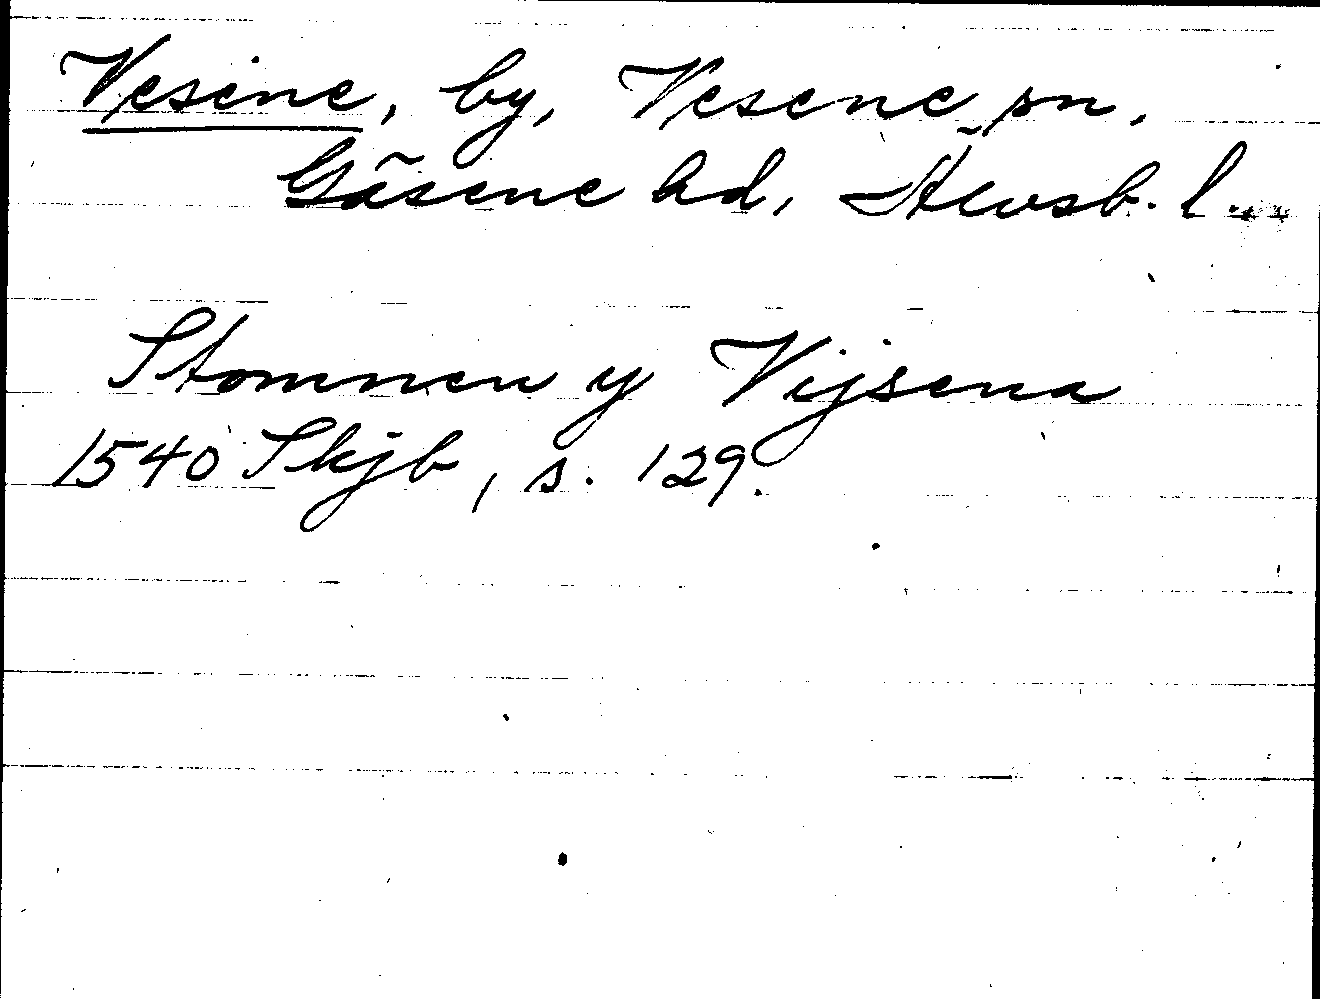 Vesene, by, Vesene sn,
Gäsene hd, Älvsb. l.
Stommen y Vijsena
1540 Skjb, s. 129.